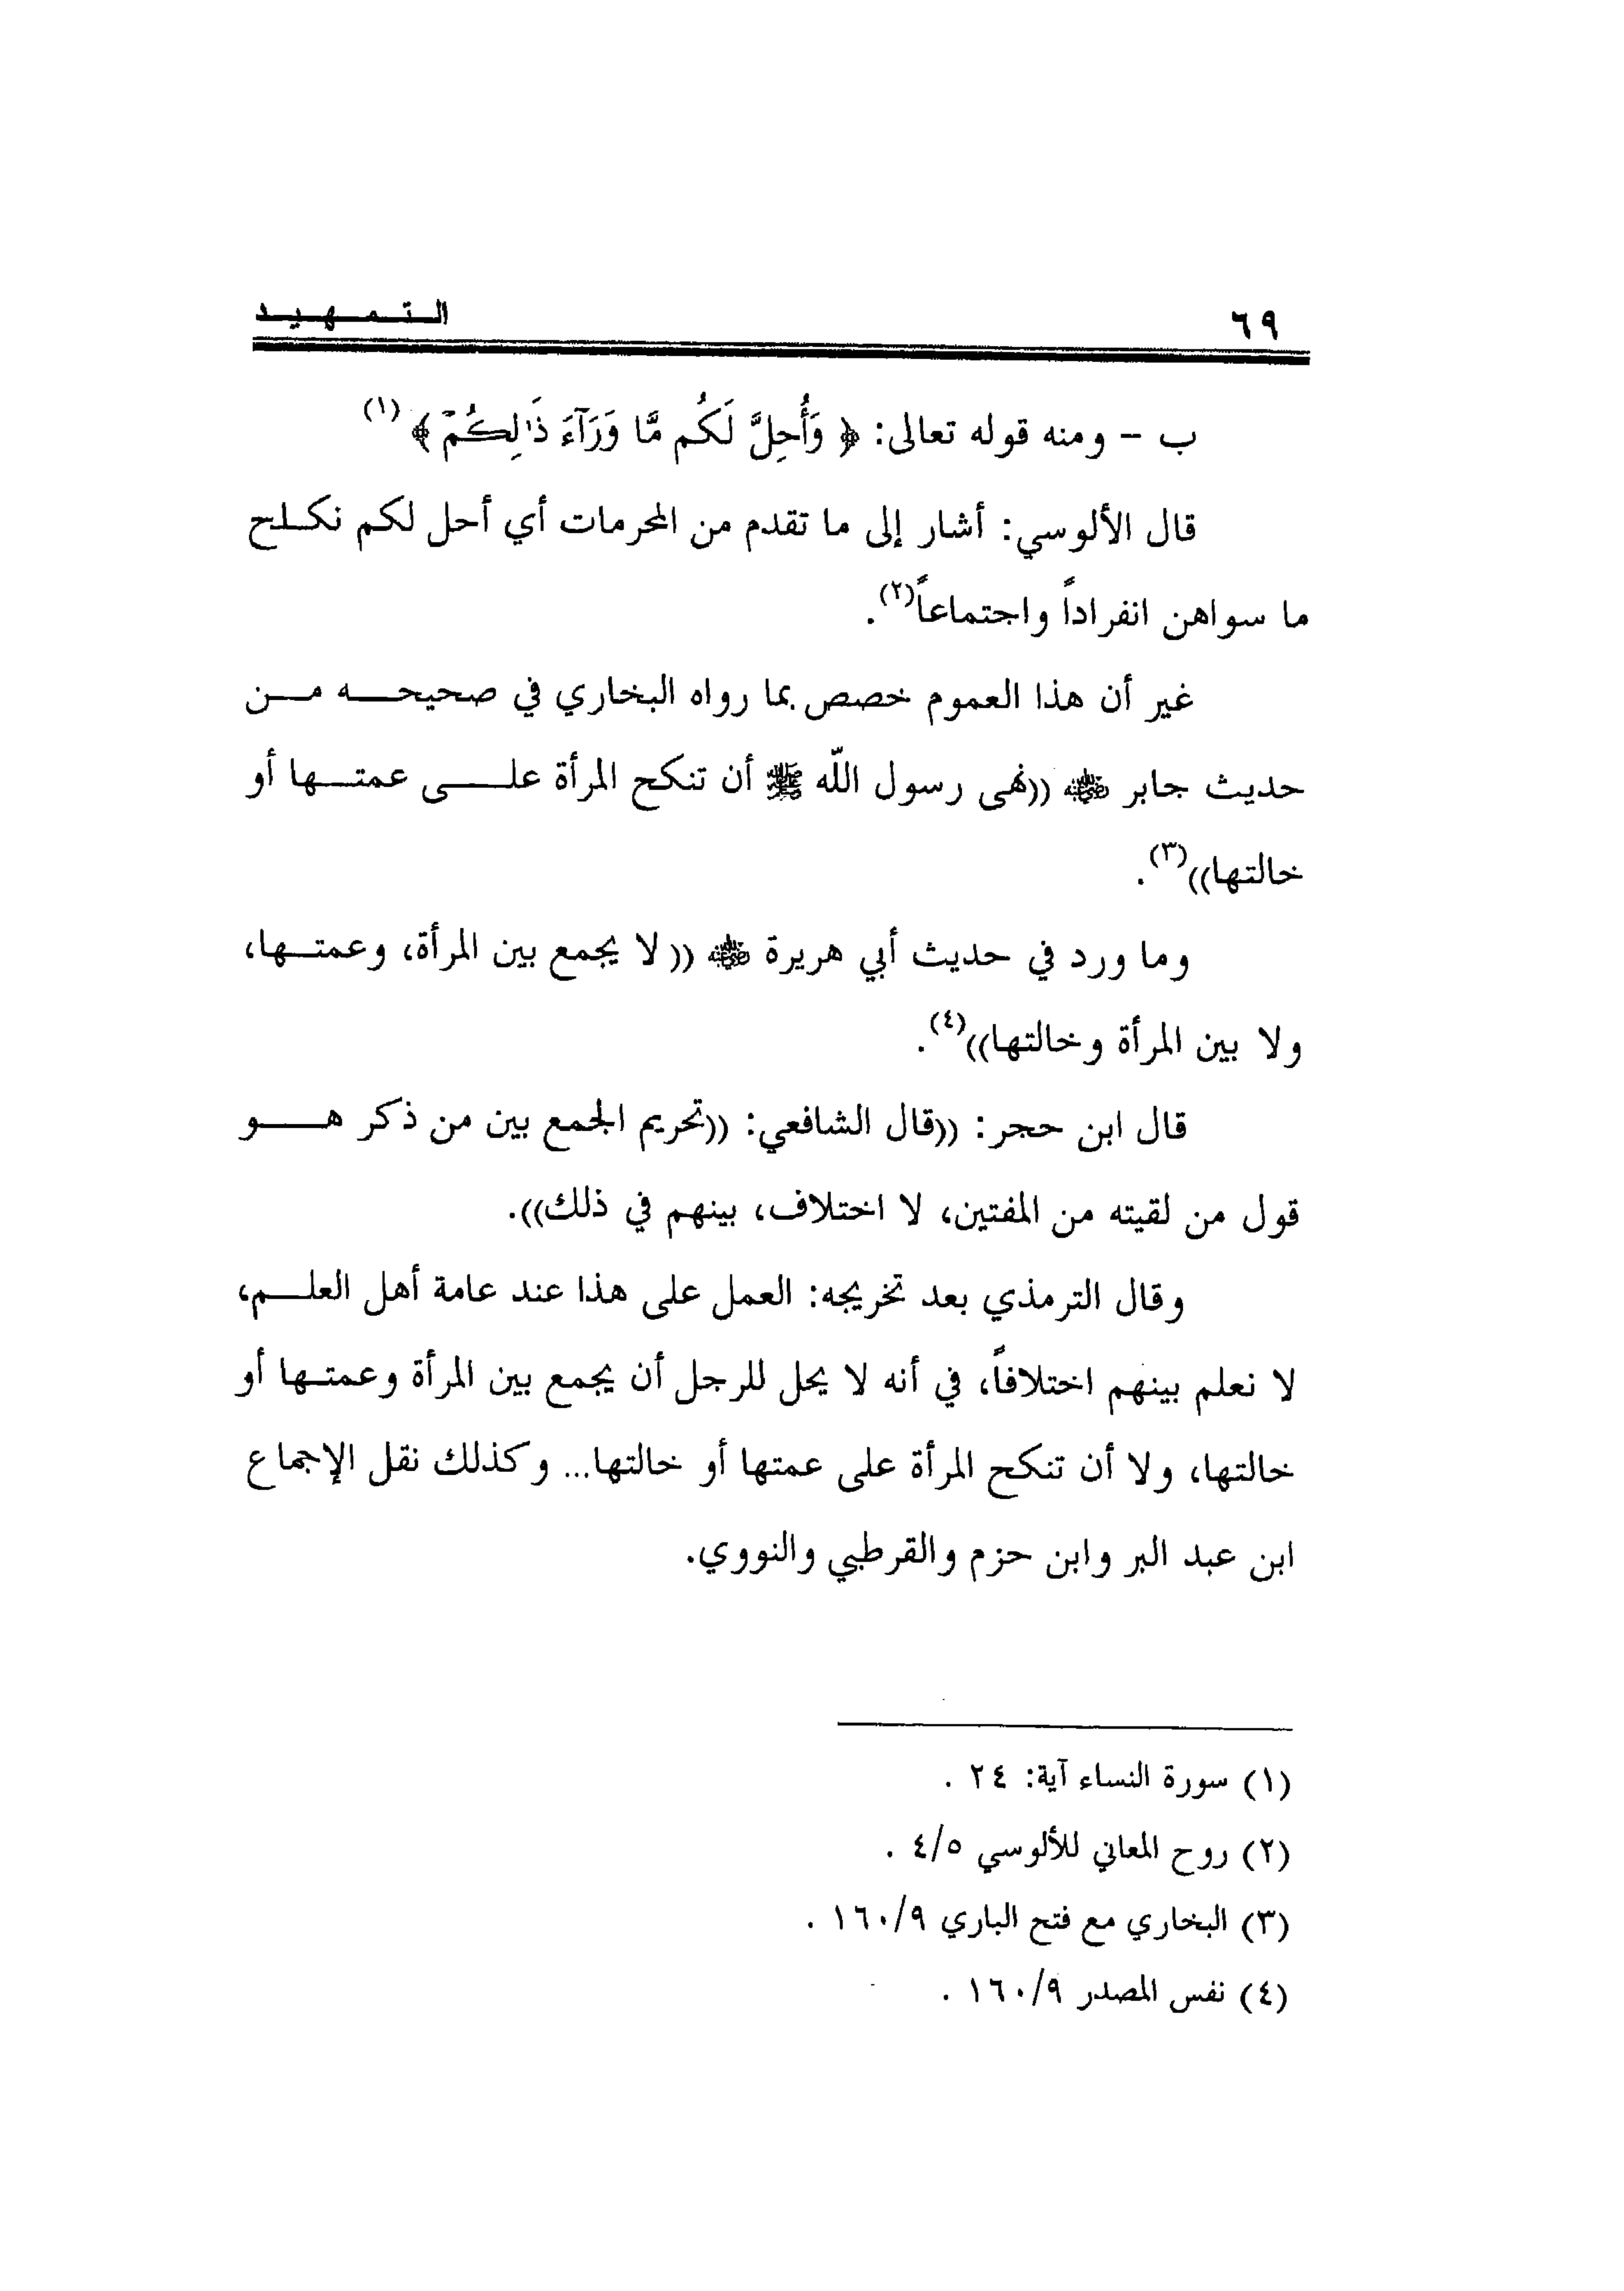 ٦٩ التمهيد
ب - ومنه قوله تعالى: ﴿ وَأُحِلَّ لَكُم مَّا وَرَآءَ ذَٰلِكُمْ ﴾(١)
قال الألوسي: أشار إلى ما تقدم من المحرمات أي أحل لكم نكاح
ما سواهن انفراداً واجتماعاً(٢).
غير أن هذا العموم خصص بما رواه البخاري في صحيحه من
حديث جابر ﷺ ((نهى رسول الله ﷺ أن تنكح المرأة على عمتها أو
خالتها))(٣).
وما ورد في حديث أبي هريرة ﷺ (( لا يجمع بين المرأة، وعمتها،
ولا بين المرأة وخالتها))(٤).
قال ابن حجر: ((قال الشافعي: ((تحريم الجمع بين من ذكر هو
قول من لقيته من المفتين، لا اختلاف، بينهم في ذلك)).
وقال الترمذي بعد تخريجه: العمل على هذا عند عامة أهل العلم،
لا نعلم بينهم اختلافاً، في أنه لا يحل للرجل أن يجمع بين المرأة وعمتها أو
خالتها، ولا أن تنكح المرأة على عمتها أو خالتها... وكذلك نقل الإجماع
ابن عبد البر وابن حزم والقرطبي والنووي.
(١) سورة النساء آية: ٢٤ .
(٢) روح المعاني للألوسي ٤/٥ .
(٣) البخاري مع فتح الباري ١٦٠/٩ .
(٤) نفس المصدر ١٦٠/٩ .